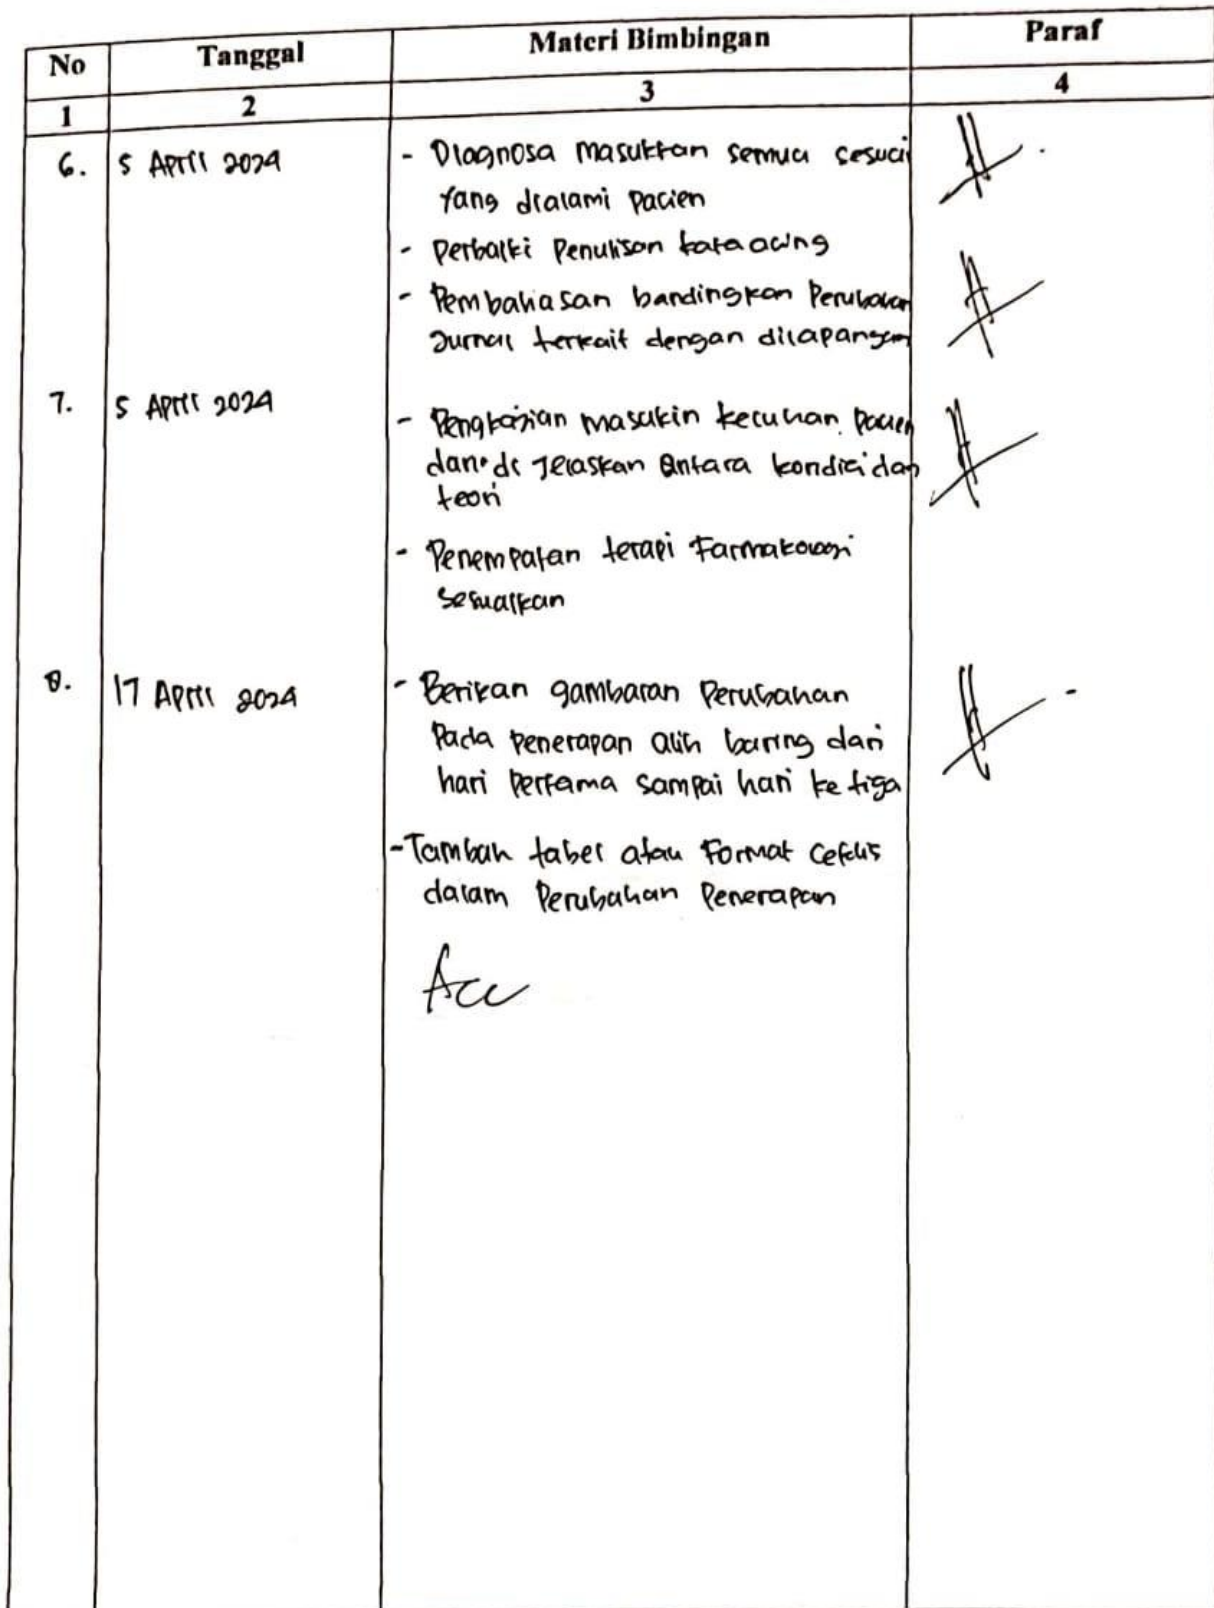 No Tanggal Materi Bimbingan Paraf
1 2 3 4
6. 5 April 2024 - Diagnosa masukkan semua sesuai
yang dialami pasien
- Perbaiki Penulisan kata asing
- Pembahasan bandingkan Perubahan
Jurnal terkait dengan dilapangan
7. 5 April 2024 - Pengkajian masukin keluhan pasien
dan di Jelaskan Antara kondisi dan
teori
- Penempatan terapi Farmakologi
Sesuaikan
8. 17 April 2024 - Berikan gambaran Perubahan
Pada penerapan alih baring dari
hari Pertama sampai hari ke tiga
- Tambah tabel atau Format Ceklis
dalam Perubahan Penerapan
Acc